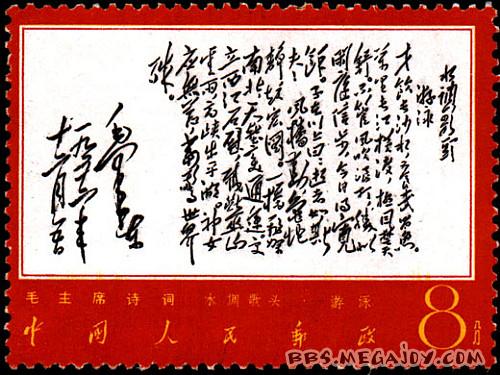 水调歌头
游泳
才饮长沙水,又食武昌鱼。
万里长江横渡,极目楚天
舒。不管风吹浪打,胜似
闲庭信步,今日得宽
馀。子在川上曰:逝者如斯
夫!风樯动,龟蛇
静,起宏图。一桥飞架
南北,天堑变通途。更
立西江石壁,截断巫山
云雨,高峡出平湖。神女
应无恙,当惊世界
殊。
毛泽东
一九五六年
十二月五日
毛主席诗词 水调歌头·游泳
中國人民郵政
8
BBS.MEGAJOY.COM